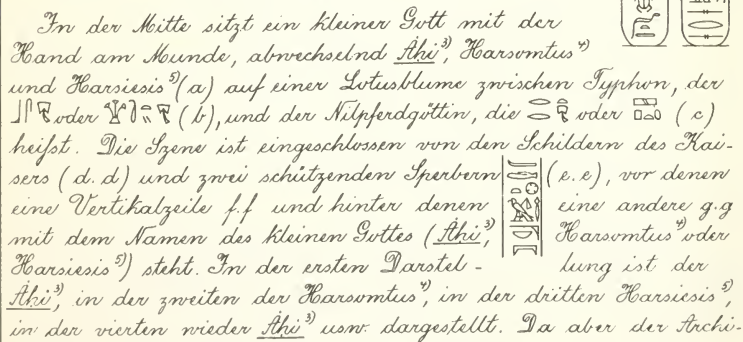 In der Mitte sitzt ein kleiner Gott mit der
Hand am Munde, abwechselnd Åḥi ³⁾, Harsomtus ⁴⁾
und Harsiesis ⁵⁾ (a) auf einer Lotusblume zwischen Typhon, der
oder (b), und der Nilpferdgöttin, die oder (c)
heißt. Die Szene ist eingeschlossen von den Schildern des Kai-
sers (d.d) und zwei schützenden Sperbern (e.e), vor denen
eine Vertikalzeile f.f und hinter denen eine andere g.g
mit dem Namen des kleinen Gottes (Åḥi ³⁾, Harsomtus ⁴⁾ oder
Harsiesis ⁵⁾) steht. In der ersten Darstel- lung ist der
Åḥi ³⁾, in der zweiten der Harsomtus ⁴⁾, in der dritten Harsiesis ⁵⁾,
in der vierten wieder Åḥi ³⁾ usw. dargestellt. Da aber der Archi-